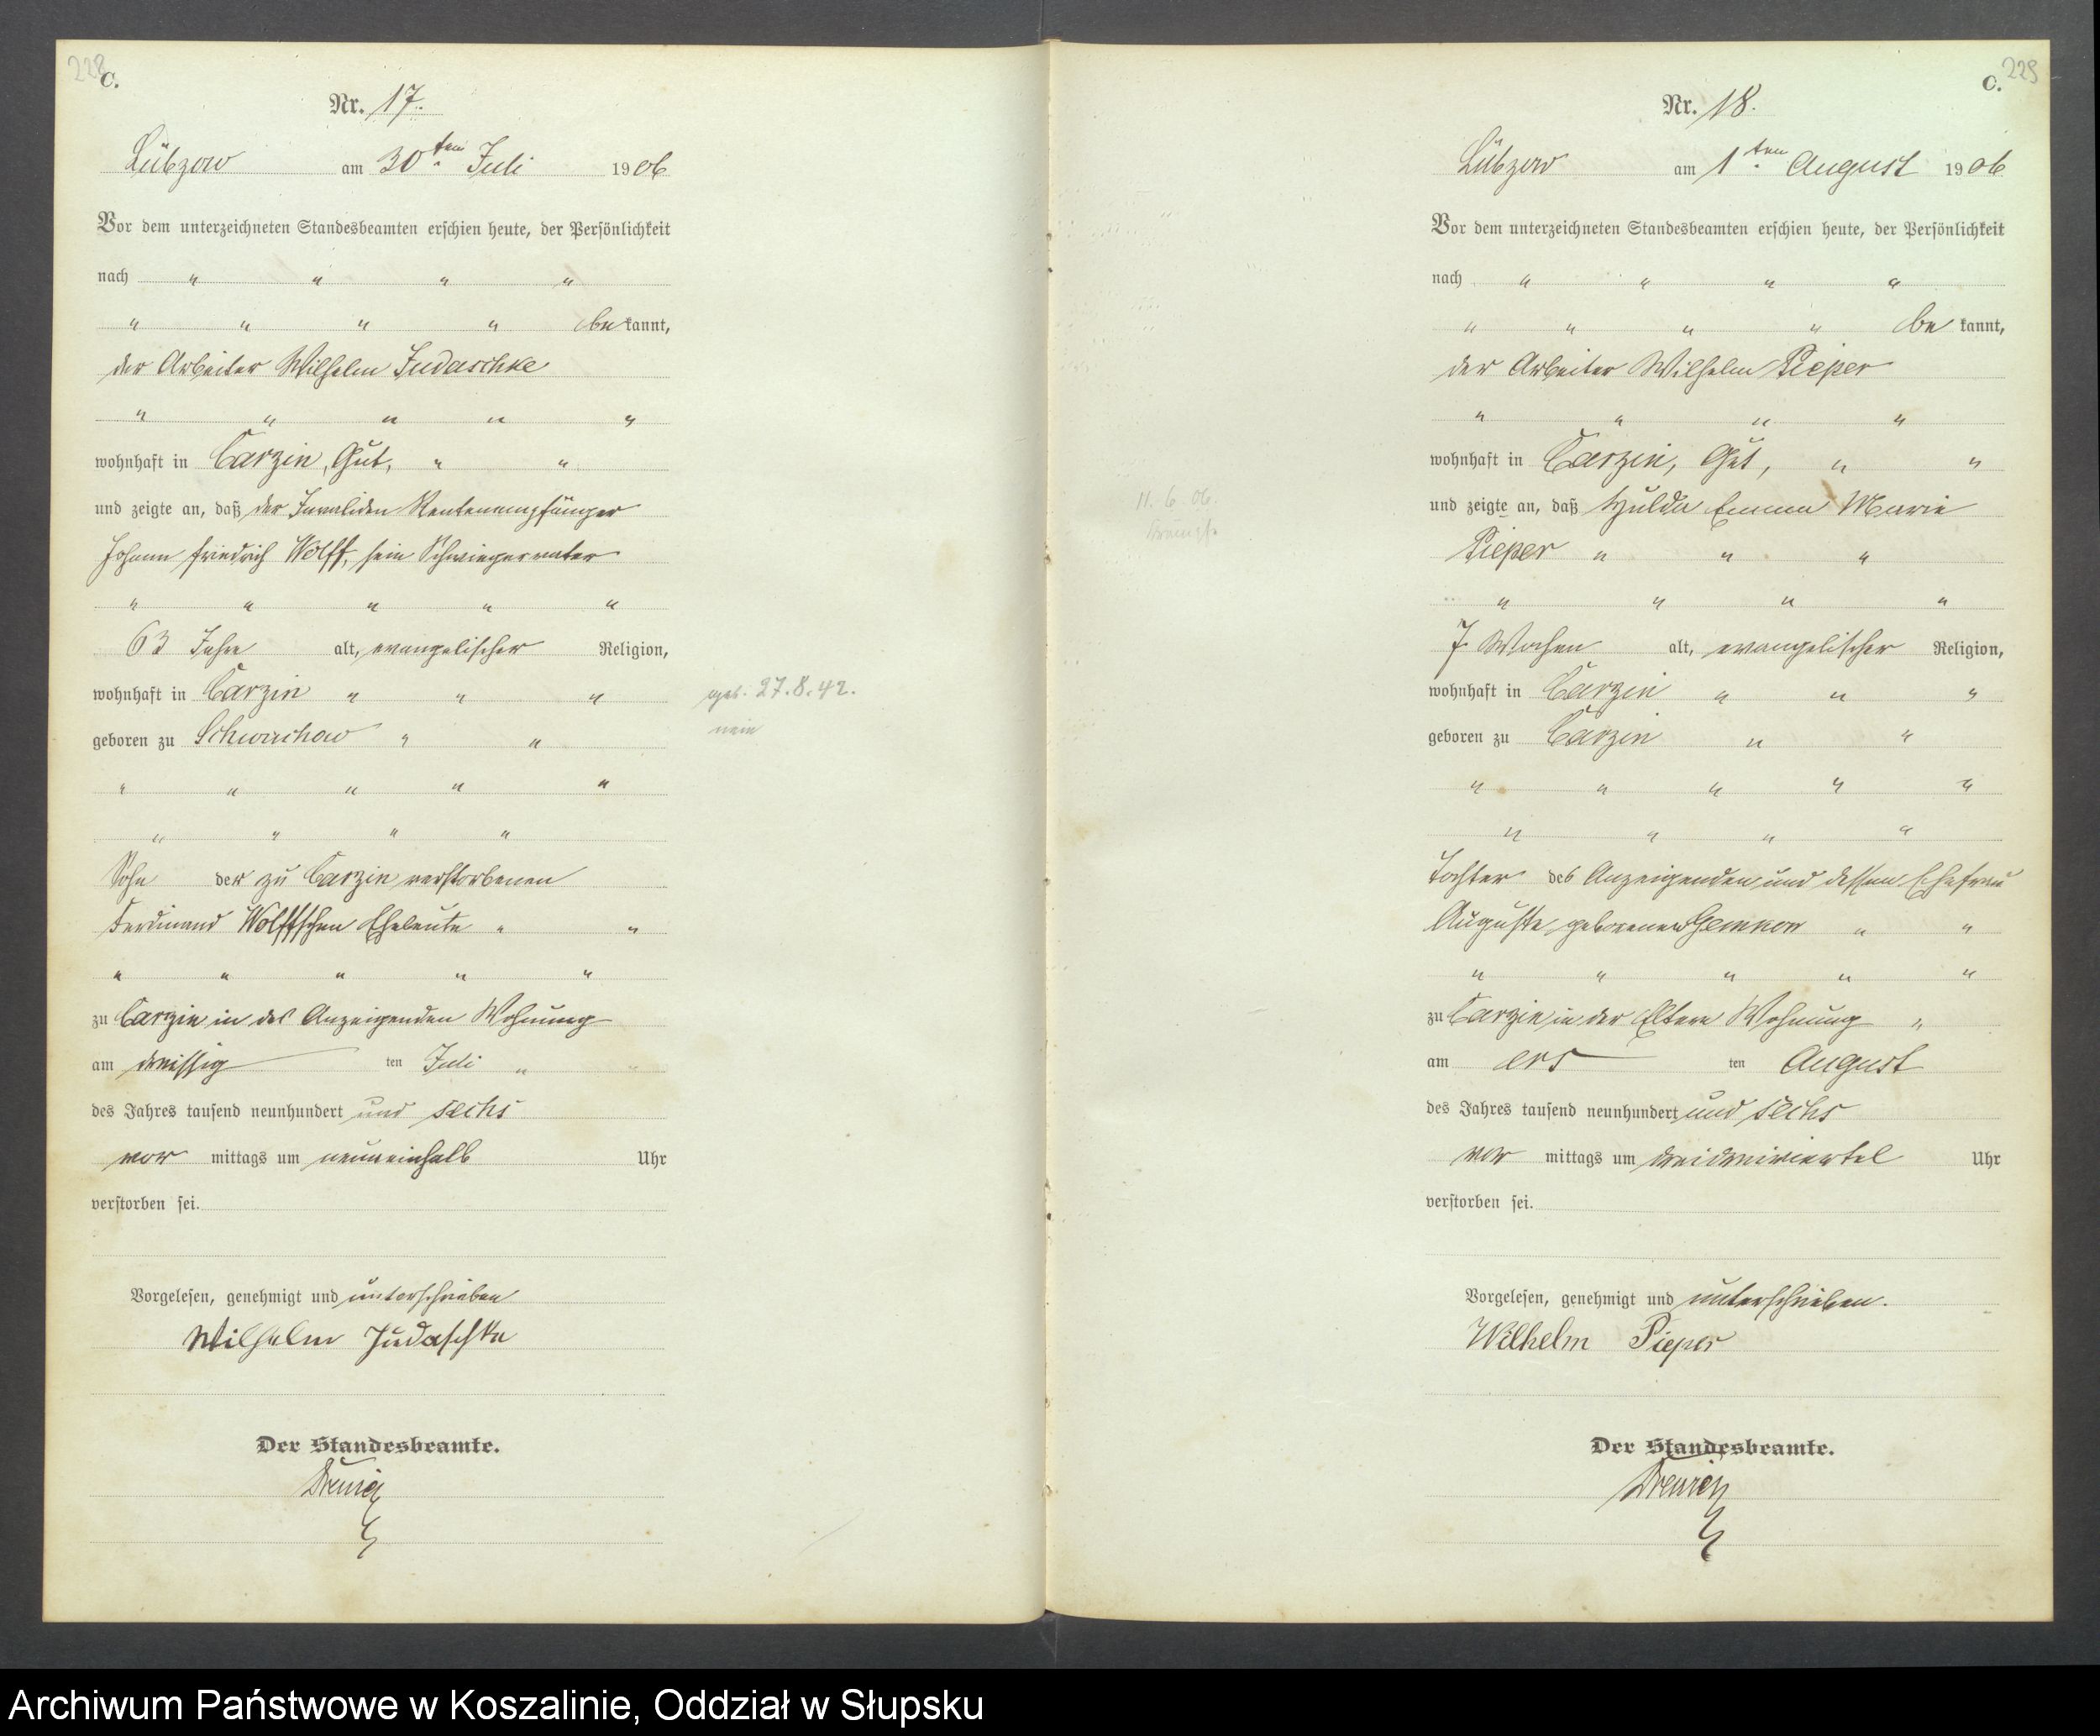 228
C.
Nr. 17.
Lübzow am 30ten Juli 1906
Vor dem unterzeichneten Standesbeamten erschien heute, der Persönlichkeit
nach " " " "
" " " " be kannt,
der Arbeiter Wilhelm Judaschke
" " " " "
wohnhaft in Carzin, Gut, " "
und zeigte an, daß der Invaliden Rentenempfänger
Johann Friedrich Wolff, sein Schwiegervater
" " " " "
63 Jahre alt, evangelischer Religion,
wohnhaft in Carzin " " "
geb. 27.8.42.
geboren zu Schwuchow " "
" " " " "
" " " "
Sohn der zu Carzin verstorbenen
Ferdinand Wolffschen Eheleute " "
" " " " "
zu Carzin in des Anzeigenden Wohnung
am dreissig ten Juli "
des Jahres tausend neunhundert und sechs
vor mittags um neuneinhalb Uhr
verstorben sei.
Vorgelesen, genehmigt und unterschrieben
Wilhelm Judaschke
Der Standesbeamte.
229
C.
Nr. 18.
Lübzow am 1ten August 1906
Vor dem unterzeichneten Standesbeamten erschien heute, der Persönlichkeit
nach " " " "
" " " " be kannt,
der Arbeiter Wilhelm Pieper
" " " "
wohnhaft in Carzin, Gut, " "
11.-6.06.
und zeigte an, daß Hulda Emma Marie
Pieper " " "
" " " "
7 Wochen alt, evangelischer Religion,
wohnhaft in Carzin " " "
geboren zu Carzin " "
" " " " "
" " " "
Tochter des Anzeigenden und dessen Ehefrau
Auguste, geborenen
" " " " "
zu Carzin in der Eltern Wohnung "
am ers ten August
des Jahres tausend neunhundert und sechs
vor mittags um dreidreiviertel Uhr
verstorben sei.
Vorgelesen, genehmigt und unterschrieben.
Wilhelm Pieper
Der Standesbeamte.
Archiwum Państwowe w Koszalinie, Oddział w Słupsku